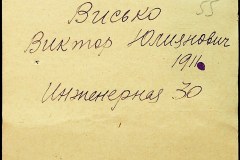 55
Висько
Виктор Юлианович
1911
Инженерная 30